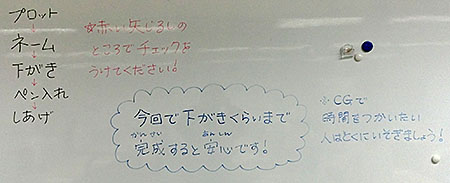 プロット
↓
ネーム
↓
下がき
↓
ペン入れ
↓
しあげ
☆赤い矢じるしの
ところでチェックを
うけてください!
今回で下がきくらいまで
かんせい あんしん
完成すると安心です!
※CGで
時間をつかいたい
人はとくにいそぎましょう!